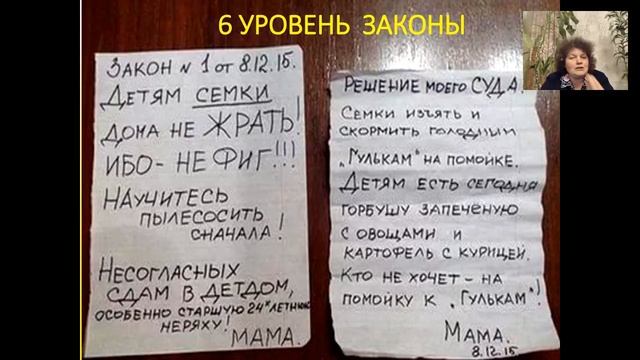 6 УРОВЕНЬ ЗАКОНЫ
ЗАКОН № 1 ОТ 8.12.15.
ДЕТЯМ СЕМКИ
ДОМА НЕ ЖРАТЬ!
ИБО - НЕ ФИГ!!!
НАУЧИТЕСЬ
ПЫЛЕСОСИТЬ
СНАЧАЛА!
НЕСОГЛАСНЫХ
СДАМ В ДЕТДОМ,
ОСОБЕННО СТАРШУЮ 24х ЛЕТНЮЮ
НЕРЯХУ!
МАМА.
РЕШЕНИЕ МОЕГО СУДА.
СЕМКИ ИЗЪЯТЬ И
СКОРМИТЬ ГОЛОДНЫМ
„ГУЛЬКАМ" НА ПОМОЙКЕ.
ДЕТЯМ ЕСТЬ СЕГОДНЯ
ГОРБУШУ ЗАПЕЧЕНУЮ
С ОВОЩАМИ И
КАРТОФЕЛЬ С КУРИЦЕЙ.
КТО НЕ ХОЧЕТ - НА
ПОМОЙКУ К „ГУЛЬКАМ"!
МАМА.
8.12.15